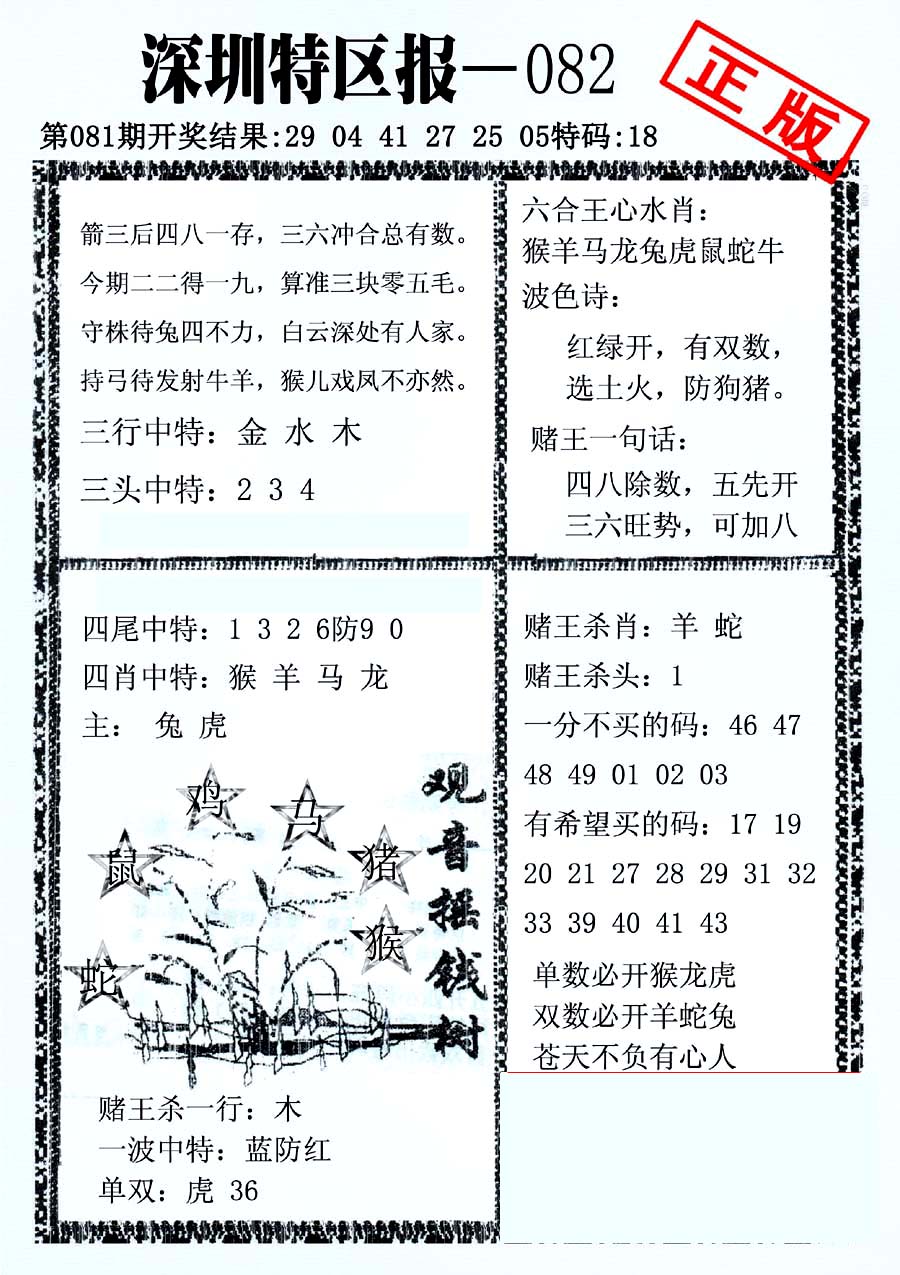 深圳特区报—082
正版
第081期开奖结果:29 04 41 27 25 05特码:18
箭三后四八一存，三六冲合总有数。
今期二二得一九，算准三块零五毛。
守株待兔四不力，白云深处有人家。
持弓待发射牛羊，猴儿戏凤不亦然。
三行中特：金 水 木
三头中特：2 3 4
六合王心水肖：
猴羊马龙兔虎鼠蛇牛
波色诗：
红绿开，有双数，
选土火，防狗猪。
赌王一句话：
四八除数，五先开
三六旺势，可加八
四尾中特：1 3 2 6防9 0
四肖中特：猴 羊 马 龙
主： 兔 虎
鸡
马
鼠
猪
猴
蛇
观音摇钱树
赌王杀一行：木
一波中特：蓝防红
单双：虎 36
赌王杀肖：羊 蛇
赌王杀头：1
一分不买的码：46 47
48 49 01 02 03
有希望买的码：17 19
20 21 27 28 29 31 32
33 39 40 41 43
单数必开猴龙虎
双数必开羊蛇兔
苍天不负有心人